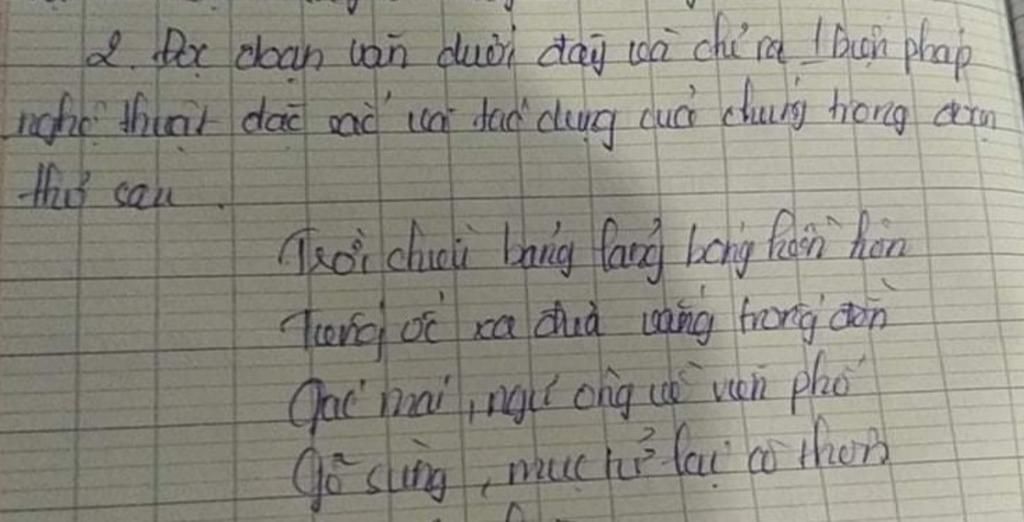 2. Đọc đoạn văn dưới đây và chỉ ra 1 biện pháp
nghệ thuật đặc sắc và tác dụng của chúng trong đoạn
thơ sau.
Trời chiều bảng lảng bóng hoàn hôn
Tiếng ốc xa đưa vẳng trống đồn
Gác mái, ngư ông về viễn phố
Gõ sừng, mục tử lại cô thôn